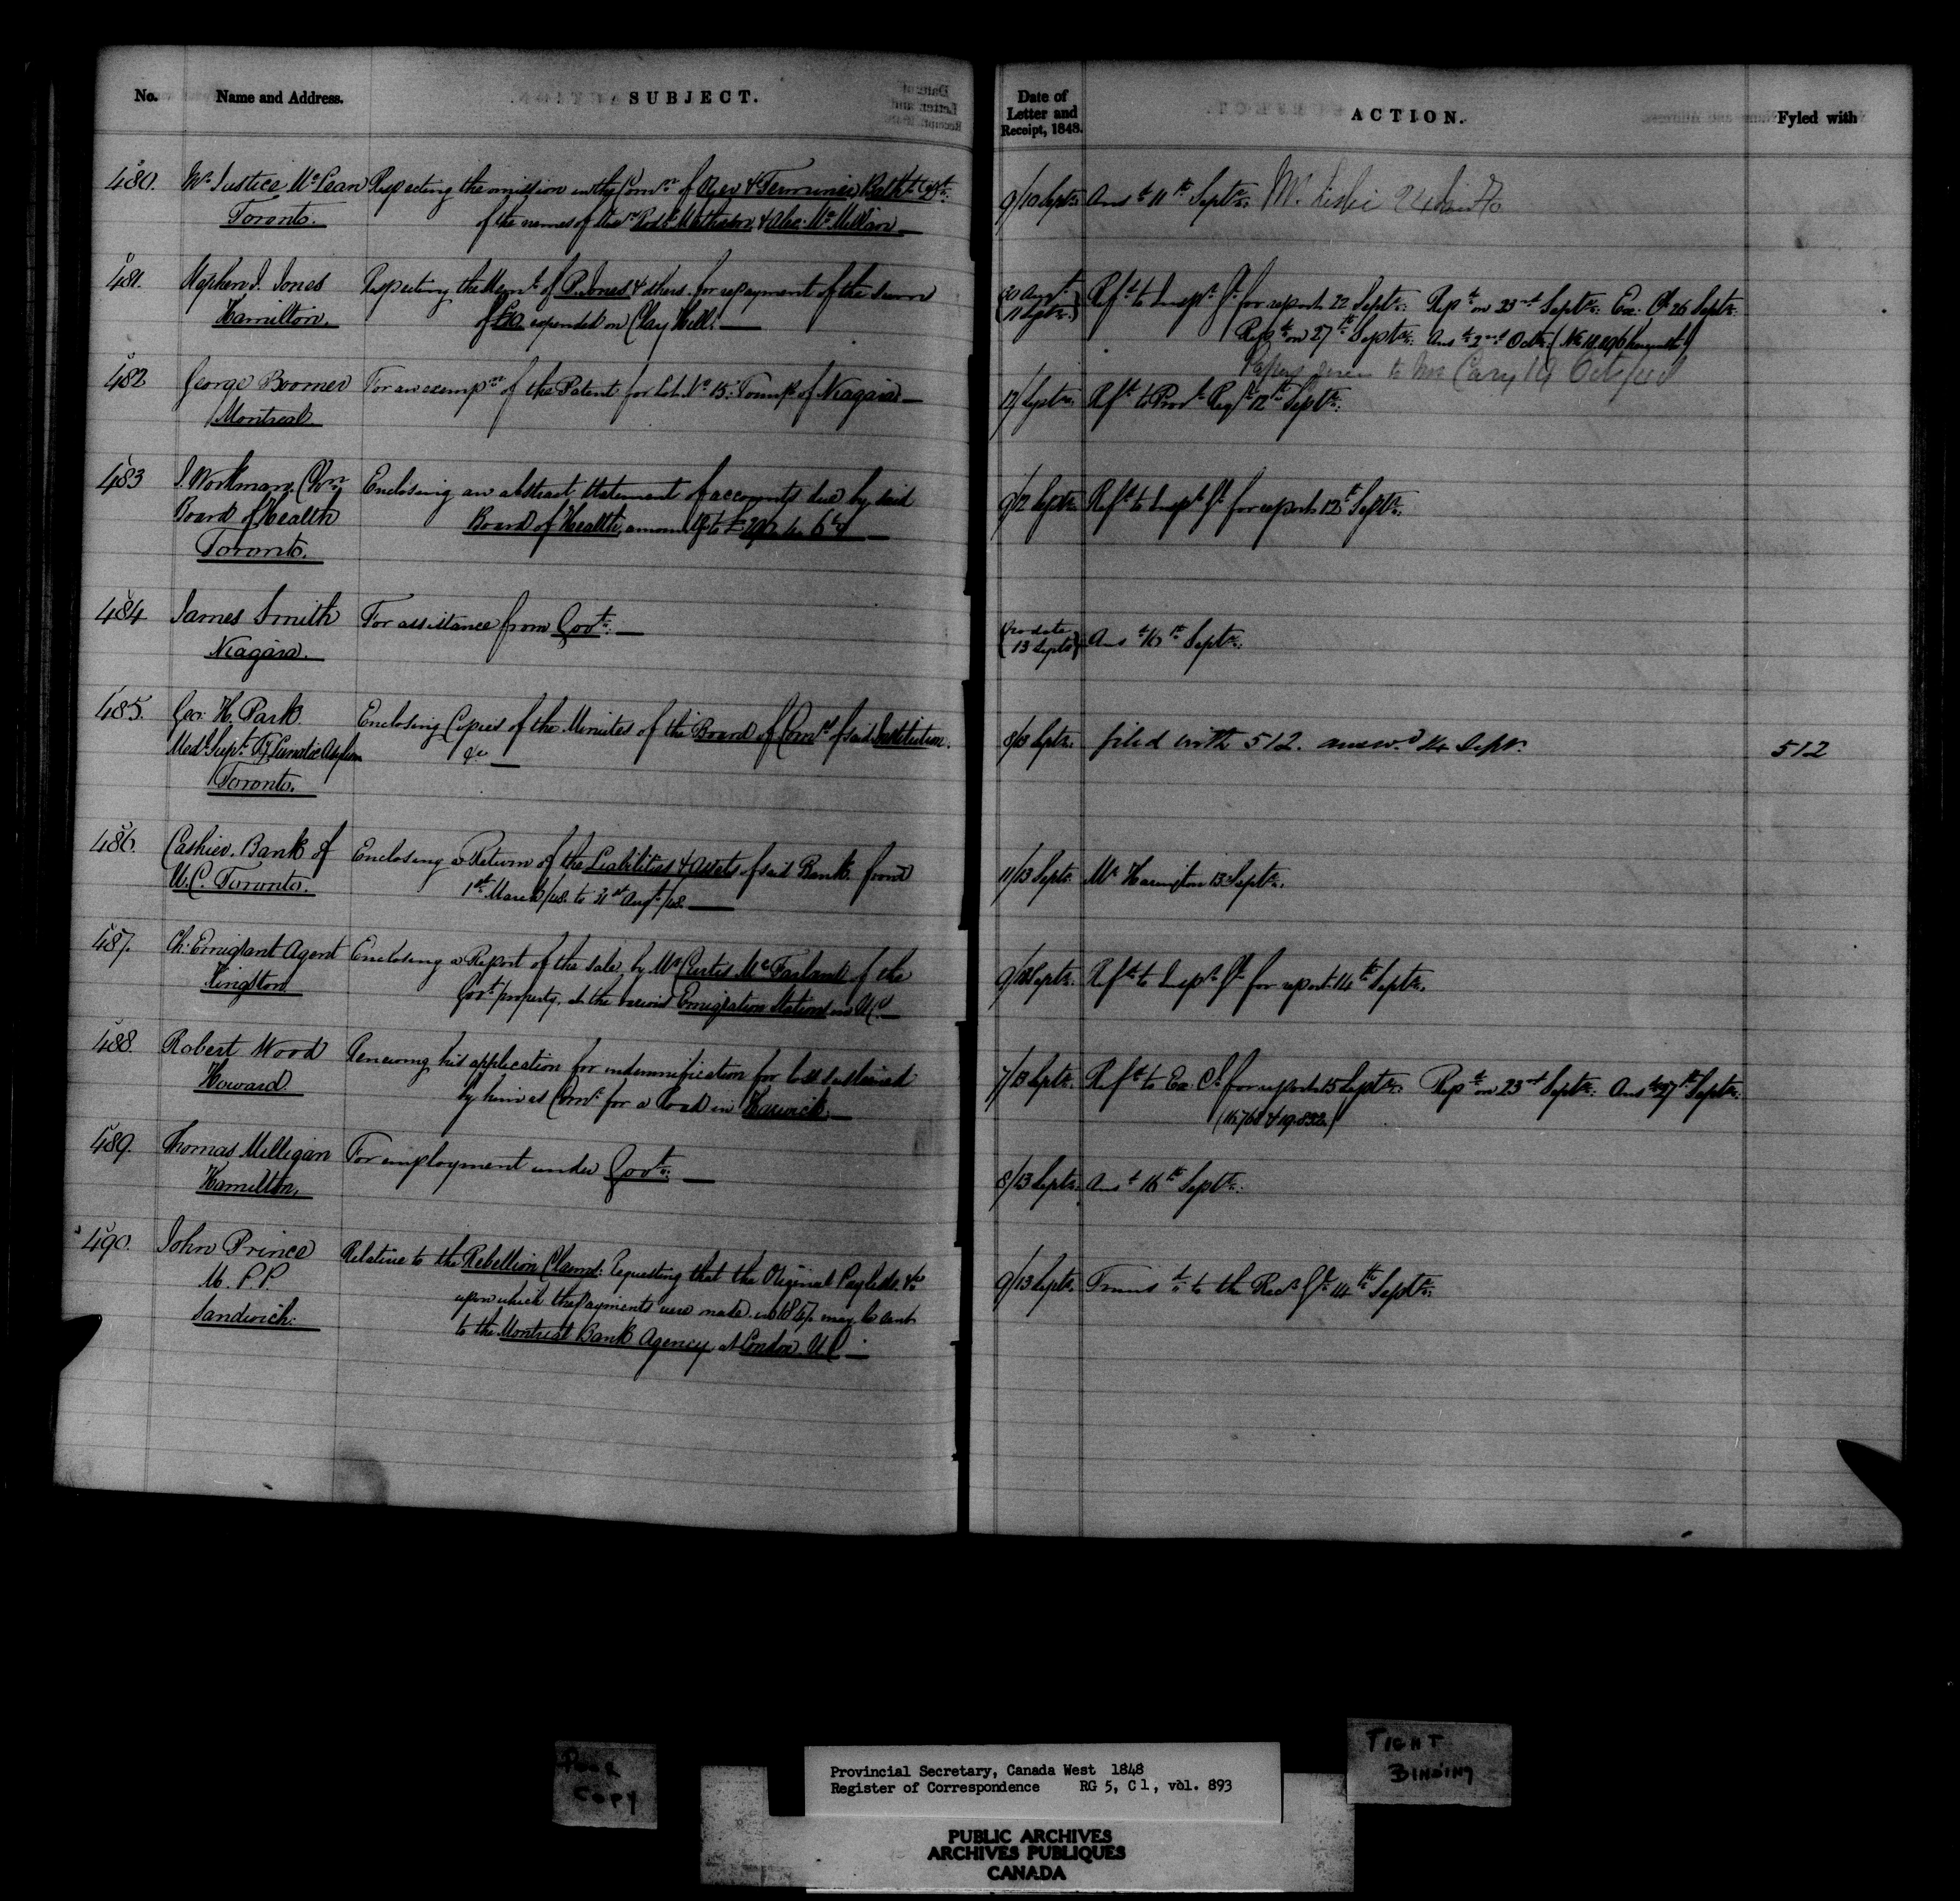 No. Name and Address. SUBJECT. Date of Letter and Receipt, 1848. ACTION. Fyled with
480. Mr. Justice McLean Respecting the omission in the Comn. of Oyer & Terminer, Bathst. Dist.
Toronto. of the names of the Rodk. Matheson & Alex. McMillan
9/10 Septr. Ansd. 11th Septr. Mr. Leslie
481. Stephen J. Jones Respecting the Meml. of P. Jones & others for repayment of the sum
Hamilton. of £50 expended on Clay Hill.
30 Augt. 11 Septr. Refd. to Inspr. Gl. for report 22 Septr. Repd. on 23rd Septr. Ex. Cl. 26 Septr.
Repd. on 27th Septr. Ansd. 2nd Octr.
Papers given to Mr. Cary 14 Oct/48
482 George Boomer For an exempn. of the Patent for Lot No. 15: Townp. of Niagara
Montreal.
12/Septr. Refd. to Provl. Regr. 12th Septr.
483 J. Workman, Chn. Enclosing an abstract statement of accounts due by said
Board of Health Board of Health, amountg. to
Toronto.
9/12 Septr. Refd. to Inspr. Gl. for report 12th Septr.
484 James Smith For assistance from Govt.
Niagara.
(No date 13 Septr.) Ansd. 16th Septr.
485. Geo: H. Park Enclosing Copies of the Minutes of the Board of Comrs. of said Institution.
Medl. Supt. Ty. Lunatic Asylum &c
Toronto.
8/13 Septr. filed with 512. answd. 14 Septr. 512
486. Cashier, Bank of Enclosing a Return of the Liabilities & Assets of said Bank from
U.C. Toronto. 1st March/48 to 31st Augt./48.
11/13 Septr. Mr. Harington 13 Septr.
487. Ch: Emigrant Agent Enclosing a Report of the sale, by Mr. Curtis McFarland of the
Kingston Govt. property, at the various Emigration Stations in U.C.
9/13 Septr. Refd. to Inspr. Gl. for report 14th Septr.
488. Robert Wood Renewing his application for indemnification for loss sustained
Howard. by him as Comr. for a road in Harwich.
7/13 Septr. Refd. to Ex. Cl. for report 15 Septr. Repd. on 23rd Septr. Ansd. 27th Septr.
489. Thomas Milligan For employment under Govt.
Hamilton.
8/13 Septr. Ansd. 16th Septr.
490. John Prince Relative to the Rebellion Claims: Requesting that the Original Paylists &c
M.P.P. upon which the payments were made in 1847 may be sent
Sandwich. to the Montreal Bank Agency at London. U.C.
9/13 Septr. Transd. to the Recr. Gl. 14th Septr.
POOR COPY
TIGHT BINDING
Provincial Secretary, Canada West 1848
Register of Correspondence RG 5, C 1, vol. 893
PUBLIC ARCHIVES
ARCHIVES PUBLIQUES
CANADA